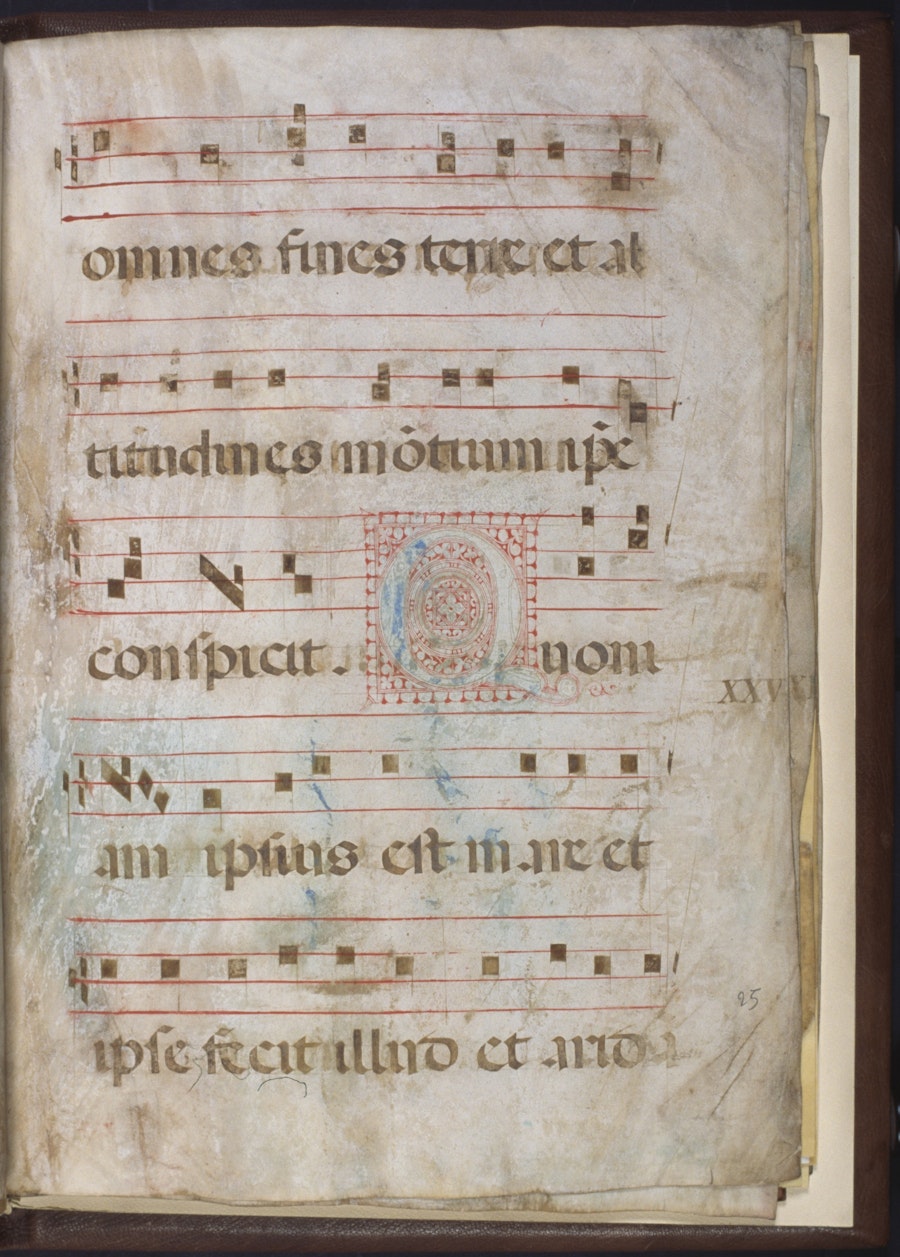 omnes fines terre et al
titudines mōtium ip̄e
conspicit. Quoni
am ipsius est mare et
XXV
ipse fecit illud et arid
25